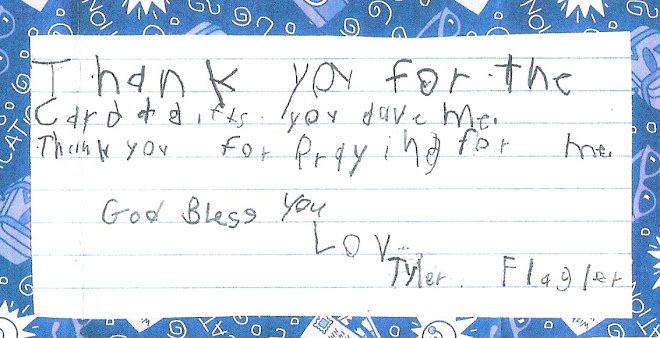 Thank you for the
Card gifts you gave me.
Thank you for Praying for me.
God Bless You
Love
Tyler Flagler